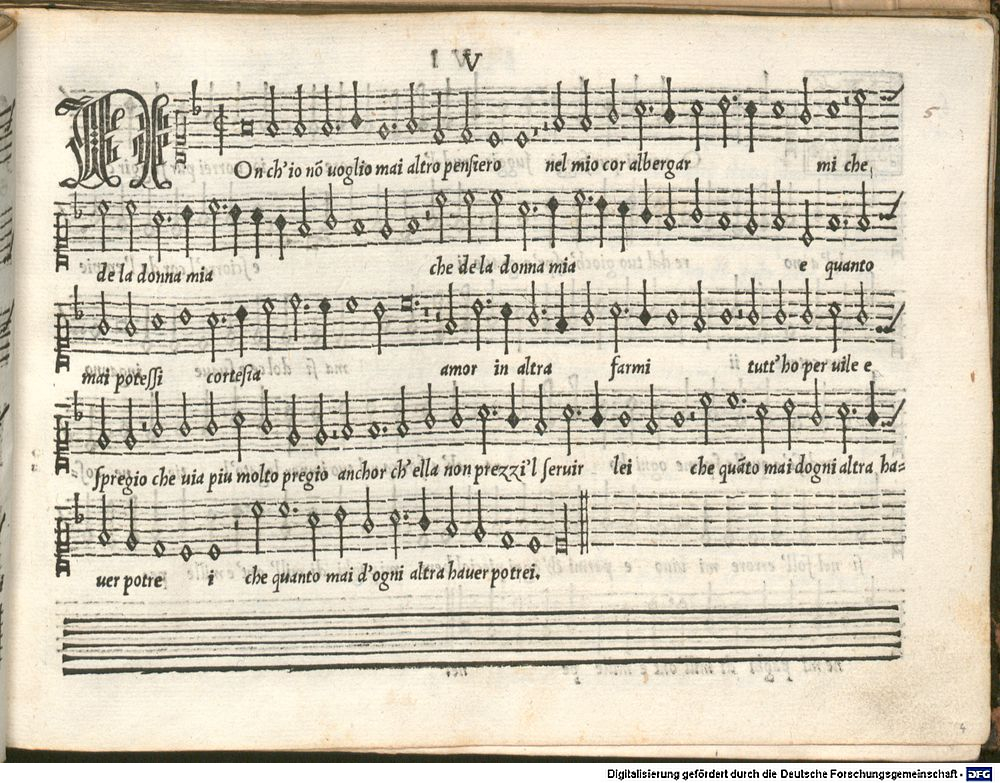 I V
5
NOn ch'io nō uoglio mai altro pensiero nel mio cor albergar mi che
de la donna mia che de la donna mia e quanto
mai potessi cortesia amor in altra farmi tutt'ho per uile e
spregio che uia piu molto pregio anchor ch'ella non prezzi'l seruir lei che quāto mai dogni altra ha=
uer potre i che quanto mai d'ogni altra hauer potrei.
4
Digitalisierung gefördert durch die Deutsche Forschungsgemeinschaft - DFG